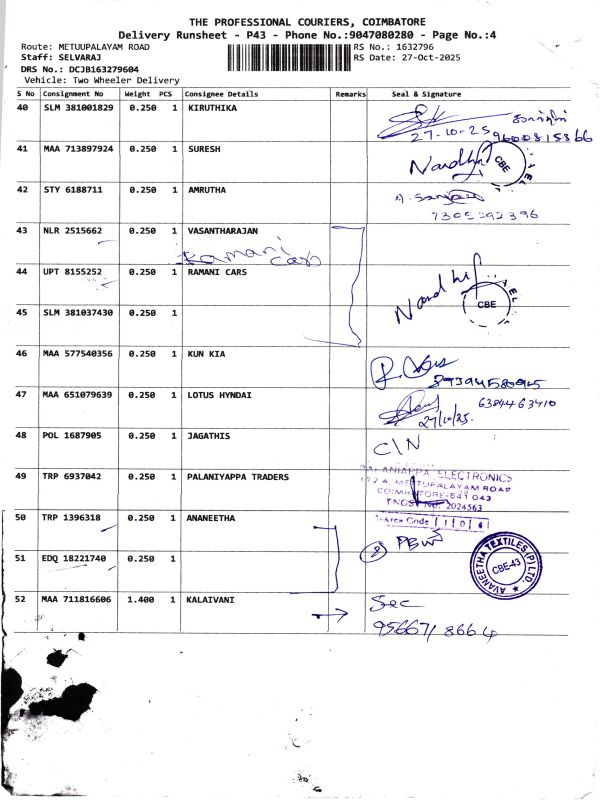 THE PROFESSIONAL COURIERS, COIMBATORE
Delivery Runsheet - P43 - Phone No.:9047080280 - Page No.:4
Route: METUUPALAYAM ROAD RS No.: 1632796
Staff: SELVARAJ RS Date: 27-Oct-2025
DRS No.: DCJB163279604
Vehicle: Two Wheeler Delivery
S No Consignment No Weight PCS Consignee Details Remarks Seal & Signature
40 SLM 381001829 0.250 1 KIRUTHIKA
27-10-25 9600815866
41 MAA 713897924 0.250 1 SURESH
CBE
42 STY 6188711 0.250 1 AMRUTHA
7305292396
43 NLR 2515662 0.250 1 VASANTHARAJAN
Ramani Cars
44 UPT 8155252 0.250 1 RAMANI CARS
CBE
45 SLM 381037430 0.250 1
46 MAA 577540356 0.250 1 KUN KIA
47 MAA 651079639 0.250 1 LOTUS HYNDAI
6384463410
27/10/25.
48 POL 1687905 0.250 1 JAGATHIS
C/N
49 TRP 6937042 0.250 1 PALANIYAPPA TRADERS
PALANIAPPA ELECTRONICS
METTUPALAYAM ROAD
COIMBATORE-641 043
TNGST No: 2024563
Area Code 106
50 TRP 1396318 0.250 1 ANANEETHA
AVANEETHA TEXTILES (P) LTD.
CBE-43
51 EDQ 18221740 0.250 1
52 MAA 711816606 1.400 1 KALAIVANI
Sec
95667/8664